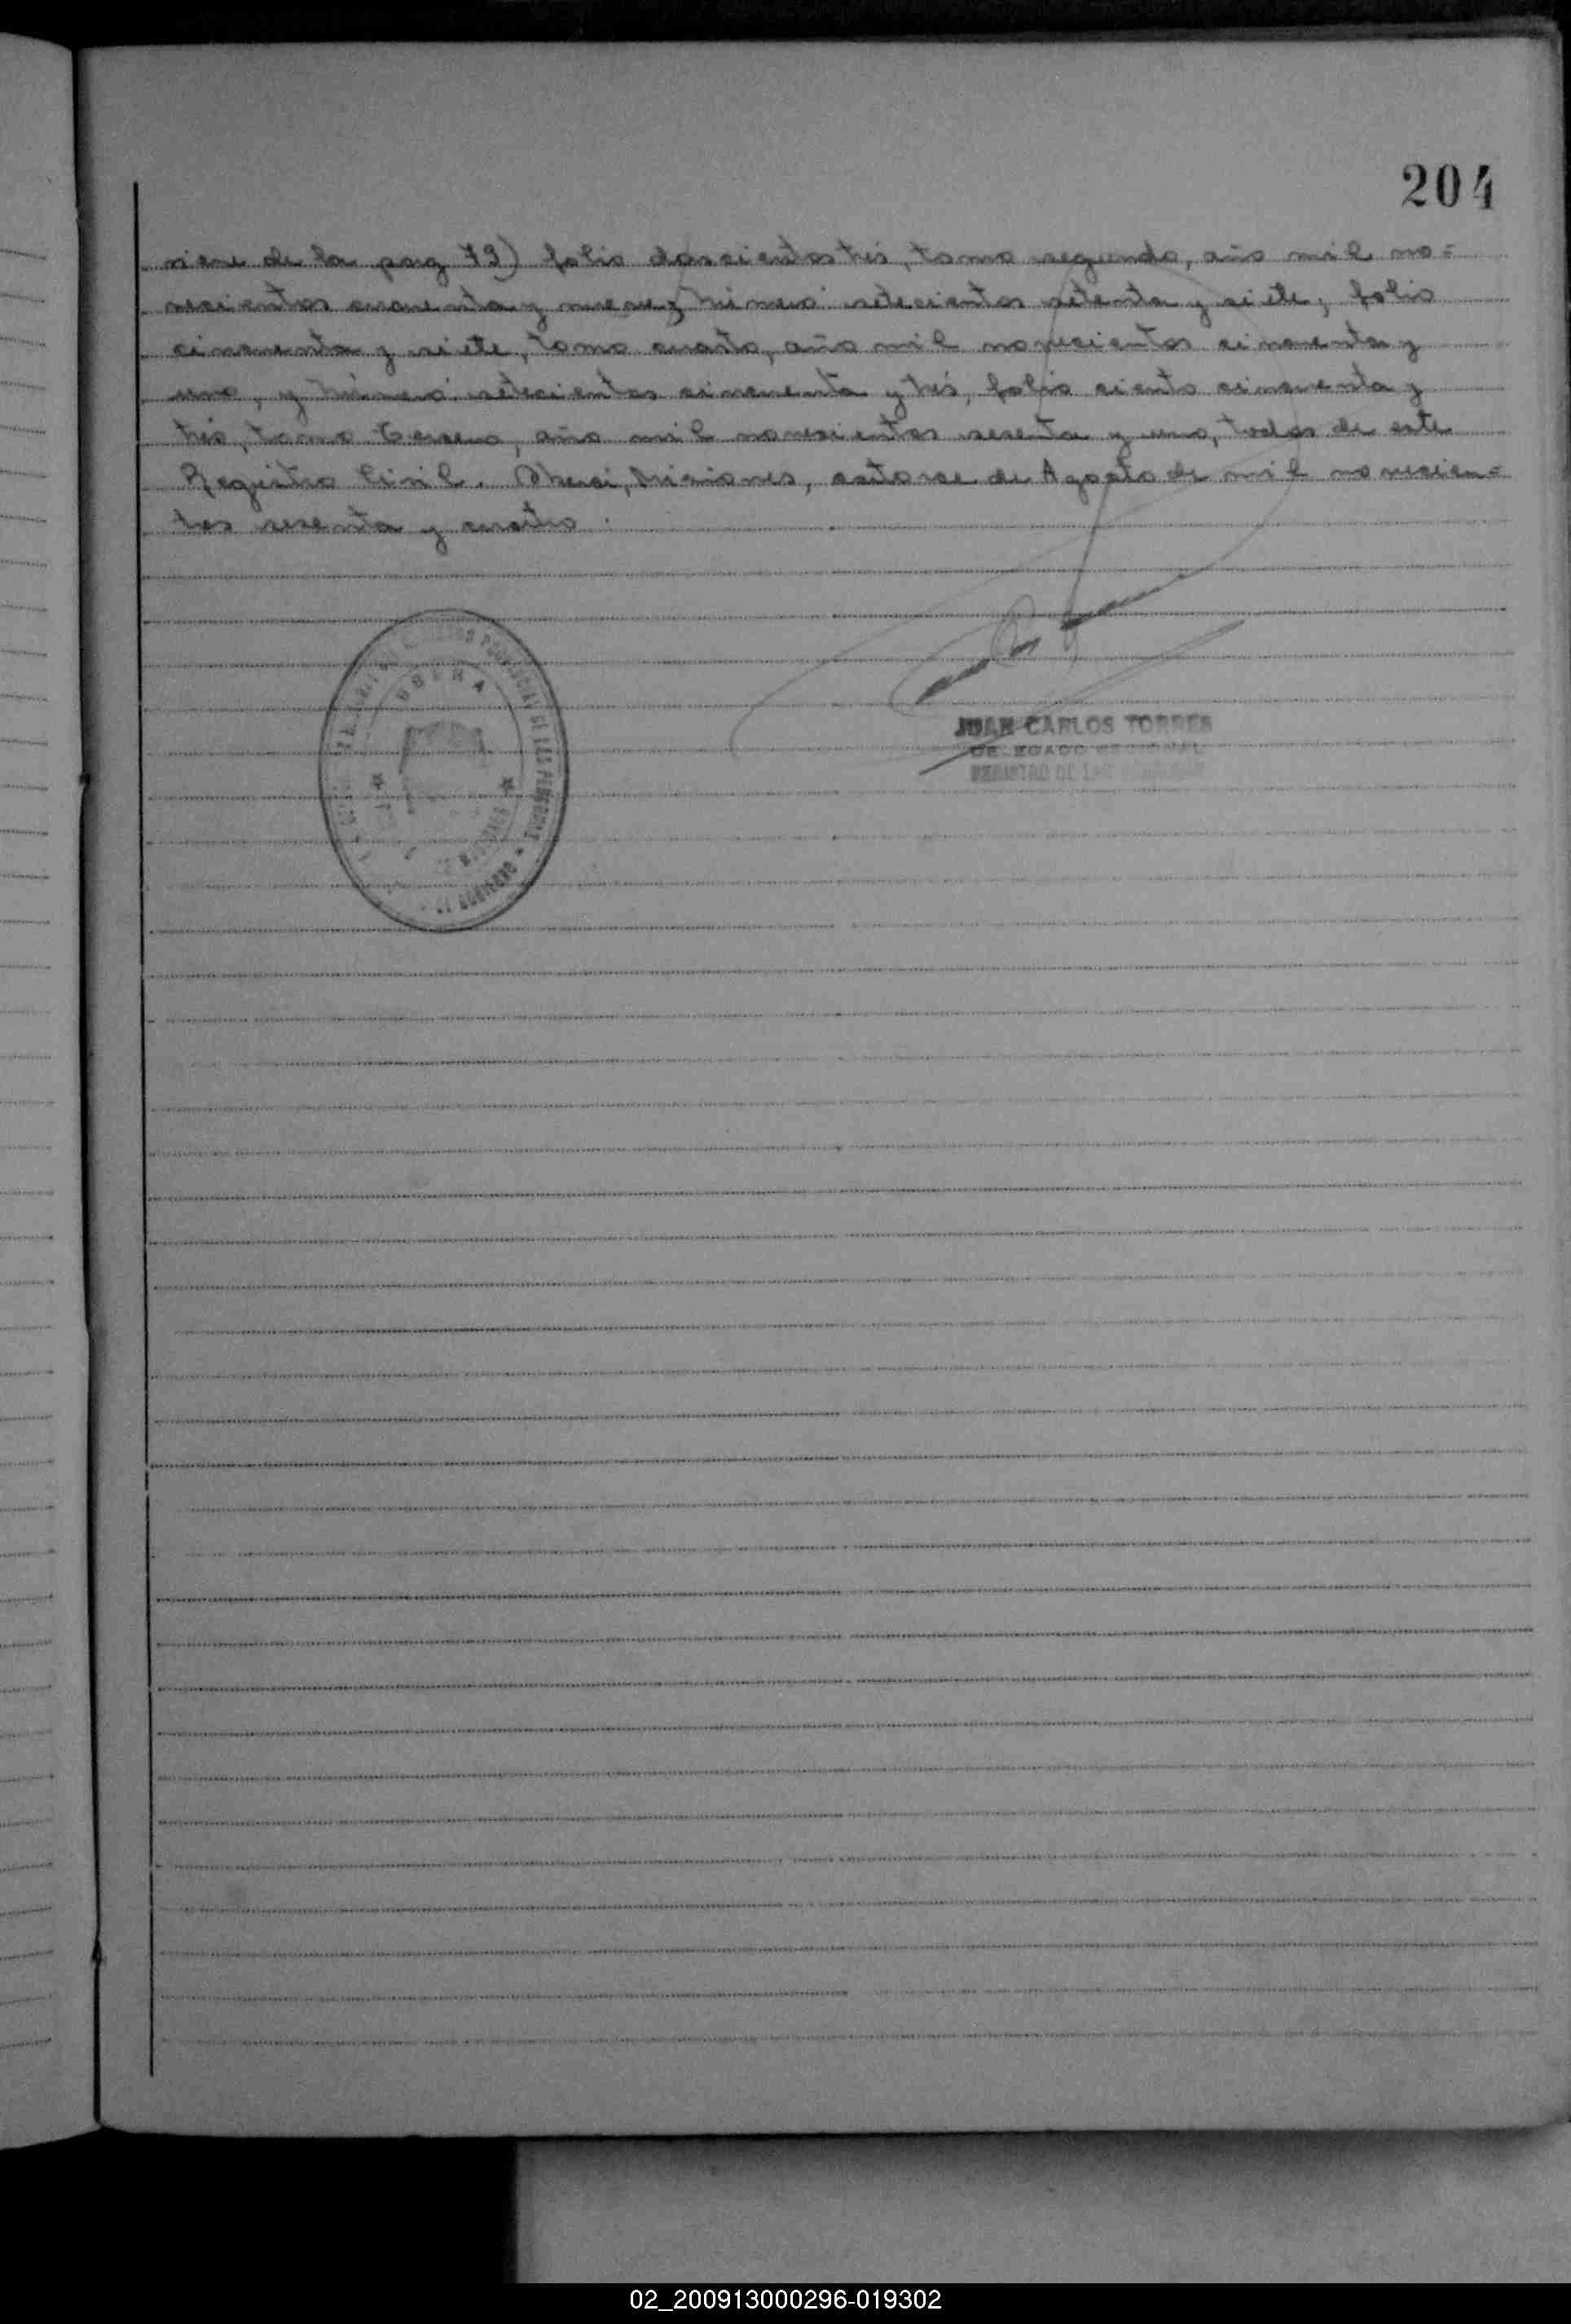 204
viene de la pag 73) folio doscientos tres, tomo segundo, año mil no=
vecientos cuarenta y nueve; número setecientos setenta y siete, folio
cincuenta y siete, tomo cuarto, año mil novecientos cincuenta y
uno, y número setecientos cincuenta y tres, folio ciento cincuenta y
tres, tomo tercero, año mil novecientos sesenta y uno, todos de este
Registro Civil. Oberá, Misiones, catorce de Agosto de mil novecien=
tos sesenta y cuatro.
OBERA
DE LAS PERSONAS
GOBIERNO
JUAN CARLOS TORRES
DELEGADO
REGISTRO DE LAS
02_200913000296-019302